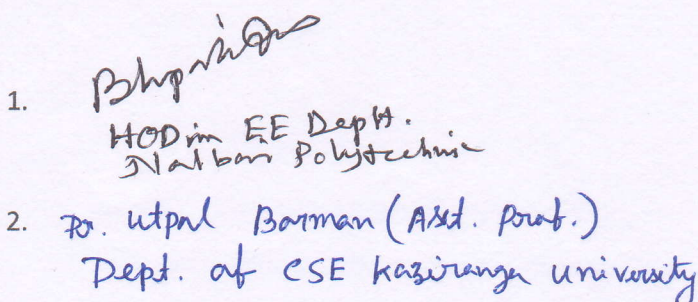 1.
HOD in EE Deptt.
Nalbari Polytechnic
2. Dr. Utpal Barman (Asst. Prof.)
Dept. of CSE Kaziranga University